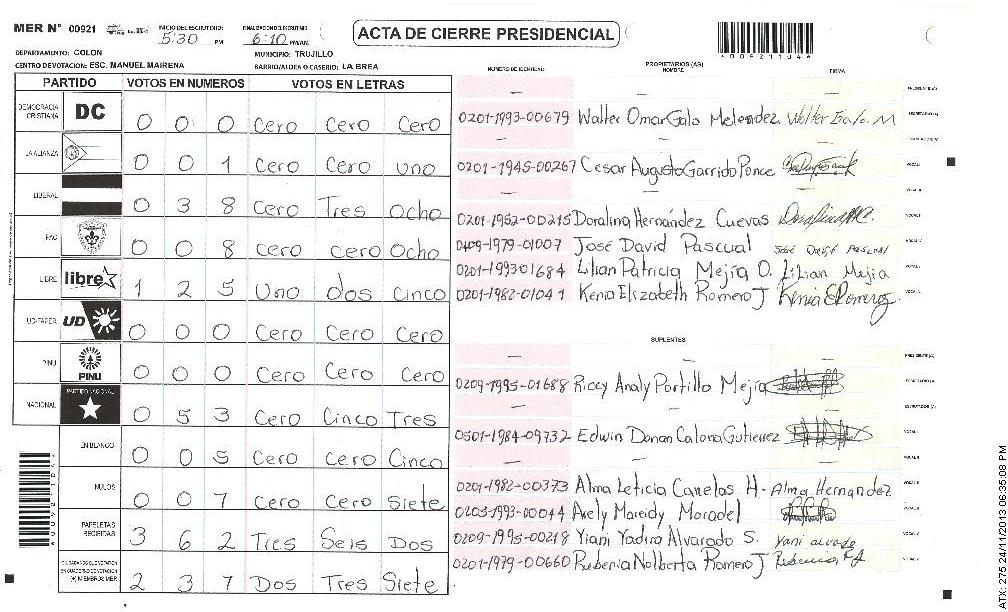 MER N° 00921 INICIO DEL ESCRUTINIO: 5:30 PM FINALIZACION ESCRUTINIO: 6:10 PM/AM. ACTA DE CIERRE PRESIDENCIAL
DEPARTAMENTO: COLON MUNICIPIO: TRUJILLO
CENTRO DE VOTACION: ESC. MANUEL MAIRENA BARRIO/ALDEA O CASERIO: LA BREA
PARTIDO VOTOS EN NUMEROS VOTOS EN LETRAS
DEMOCRACIA CRISTIANA DC 0 0 0 Cero Cero Cero
LA ALIANZA 0 0 1 Cero Cero Uno
LIBERAL 0 3 8 Cero Tres Ocho
PAC 0 0 8 Cero cero Ocho
LIBRE libre 1 2 5 Uno dos Cinco
UD-FAPER UD 0 0 0 Cero Cero Cero
PINU PINU 0 0 0 Cero Cero Cero
NACIONAL PARTIDO NACIONAL 0 5 3 Cero Cinco Tres
EN BLANCO 0 0 5 Cero Cero Cinco
NULOS 0 0 7 Cero Cero Siete
PAPELETAS RECIBIDAS 3 6 2 Tres Seis Dos
CIUDADANOS QUE VOTARON EN CUADERNO DE VOTACION (+) MIEMBROS MER 2 3 7 Dos Tres Siete
NUMERO DE IDENTIDAD PROPIETARIOS (AS) NOMBRE FIRMA
PRESIDENTE (A)
0201-1993-00679 Walter Omar Galo Melendez SECRETARIO (A)
0201-1945-00267 Cesar Augusto Garrido Ponce VOCAL I
VOCAL II
0201-1952-00215 Doralina Hernández Cuevas
0209-1979-01007 José David Pascual José David Pascual
0201-199301684 Lilian Patricia Mejía O. Lilian Mejia
0201-1982-01041 Kenia Elizabeth Romero J
SUPLENTES
PRESIDENTE (A)
0209-1995-01688 Riccy Analy Portillo Mejia SECRETARIO (A)
ESCRUTADOR (A)
0501-1984-09732 Edwin Donan Calona Gutierrez VOCAL I
VOCAL II
0201-1982-00373 Alma Leticia Canelas H- Alma Hernandez
0203-1993-00044 Axely Mareidy Moradel
0209-1995-00218 Yiani Yadira Alvarado S. Yani alvado
0201-1979-00660 Rubenia Nolberta Romero J
ATX: 275 24/11/2013 06:35:08 PM